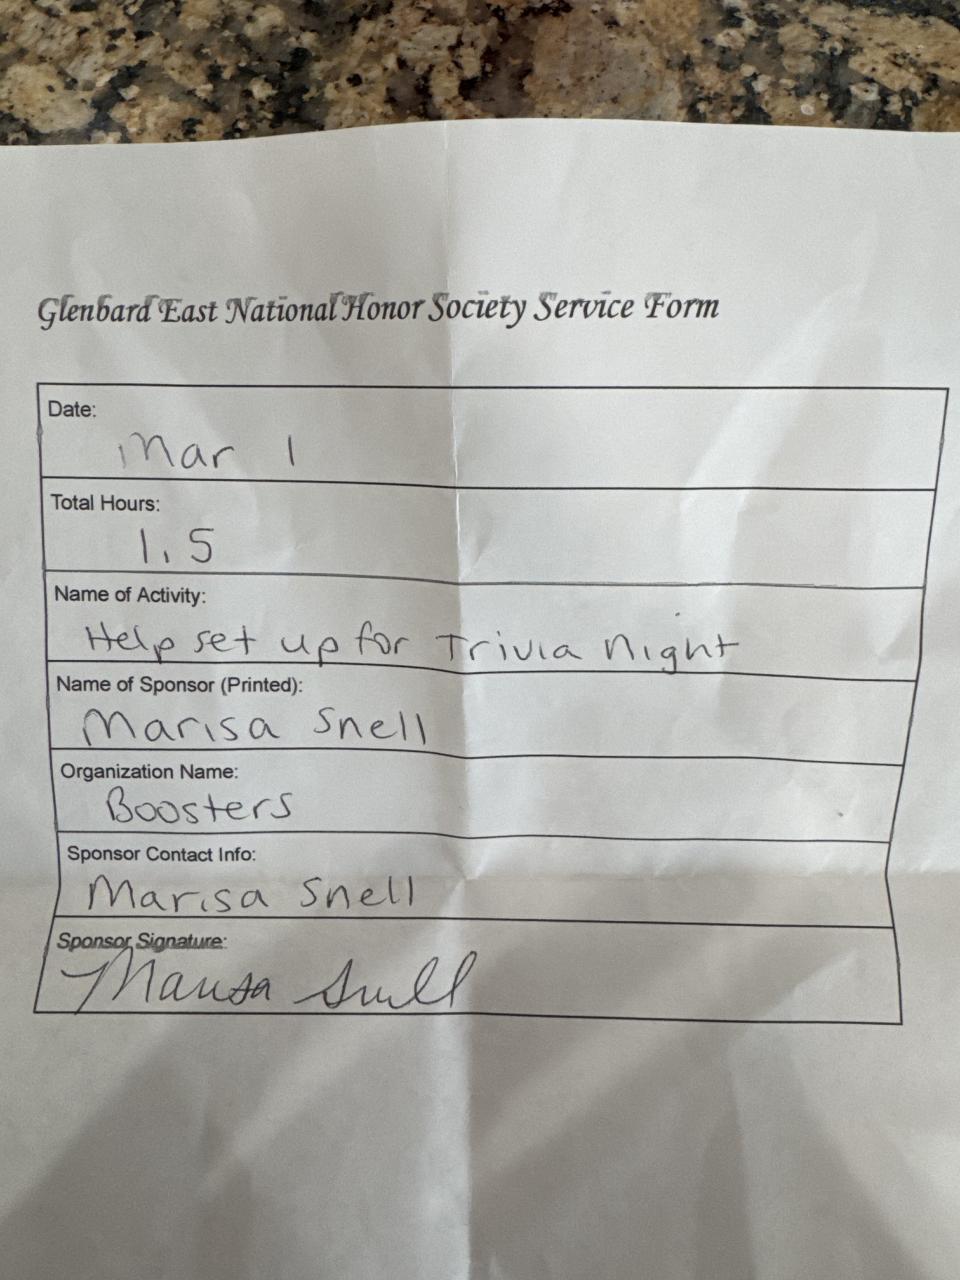 Glenbard East National Honor Society Service Form
Date:
Mar 1
Total Hours:
1.5
Name of Activity:
Help set up for Trivia Night
Name of Sponsor (Printed):
Marisa Snell
Organization Name:
Boosters
Sponsor Contact Info:
Marisa Snell
Sponsor Signature:
Marisa Snell